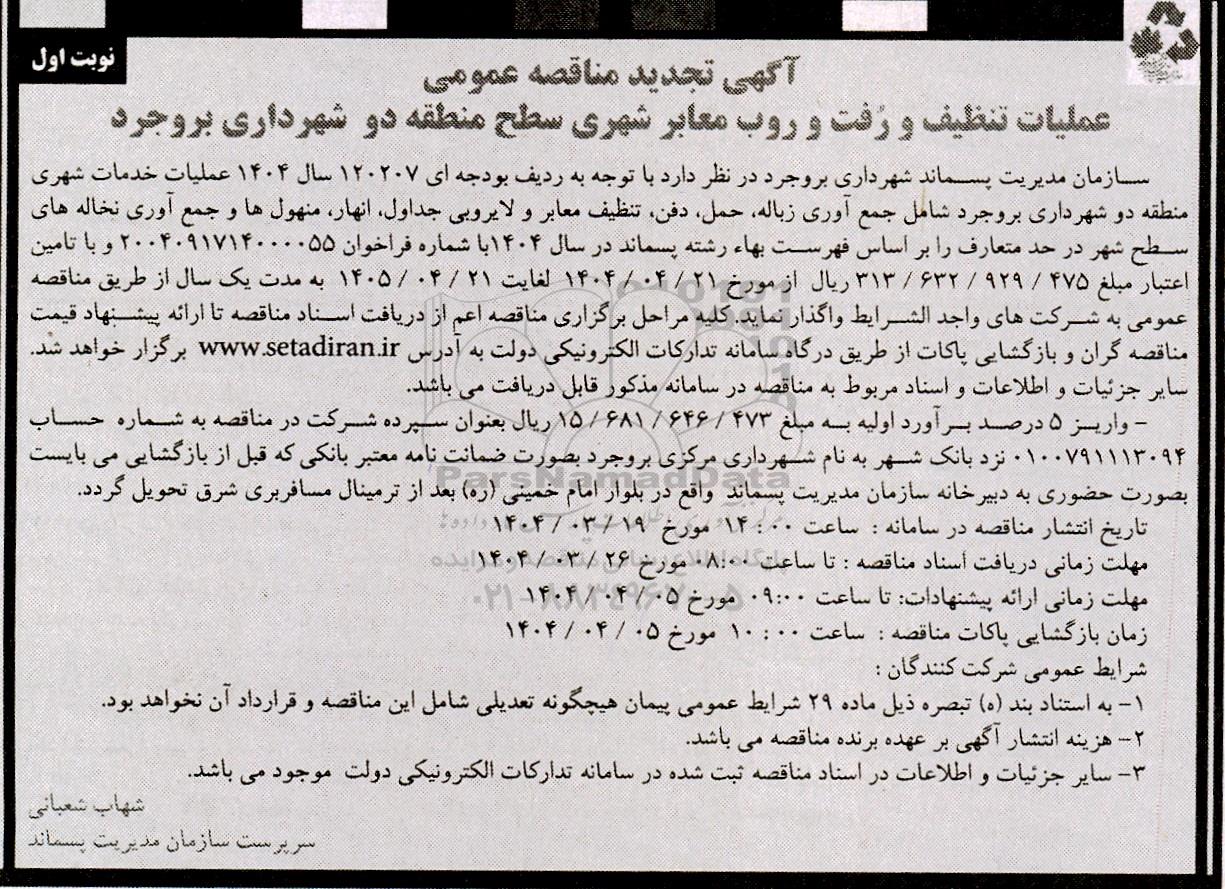 نوبت اول
آگهی تجدید مناقصه عمومی
عملیات تنظیف و رُفت و روب معابر شهری سطح منطقه دو شهرداری بروجرد
سازمان مدیریت پسماند شهرداری بروجرد در نظر دارد با توجه به ردیف بودجه ای ۱۲۰۲۰۷ سال ۱۴۰۴ عملیات خدمات شهری
منطقه دو شهرداری بروجرد شامل جمع آوری زباله، حمل، دفن، تنظیف معابر و لایروبی جداول، انهار، منهول ها و جمع آوری نخاله های
سطح شهر در حد متعارف را بر اساس فهرست بهاء رشته پسماند در سال ۱۴۰۴با شماره فراخوان ۲۰۰۴۰۹۱۷۱۴۰۰۰۰۵۵ و با تامین
اعتبار مبلغ ۴۷۵ / ۹۲۹ / ۶۳۲ / ۳۱۳ ریال از مورخ ۲۱ / ۰۴ / ۱۴۰۴ لغایت ۲۱ / ۰۴ / ۱۴۰۵ به مدت یک سال از طریق مناقصه
عمومی به شرکت های واجد الشرایط واگذار نماید. کلیه مراحل برگزاری مناقصه اعم از دریافت اسناد مناقصه تا ارائه پیشنهاد قیمت
مناقصه گران و بازگشایی پاکات از طریق درگاه سامانه تدارکات الکترونیکی دولت به آدرس www.setadiran.ir برگزار خواهد شد.
سایر جزئیات و اطلاعات و اسناد مربوط به مناقصه در سامانه مذکور قابل دریافت می باشد.
– واریز ۵ درصد برآورد اولیه به مبلغ ۴۷۳ / ۶۴۶ / ۶۸۱ / ۱۵ ریال بعنوان سپرده شرکت در مناقصه به شماره حساب
۰۱۰۰۷۹۱۱۱۳۰۹۴ نزد بانک شهر به نام شهرداری مرکزی بروجرد بصورت ضمانت نامه معتبر بانکی که قبل از بازگشایی می بایست
بصورت حضوری به دبیرخانه سازمان مدیریت پسماند واقع در بلوار امام خمینی (ره) بعد از ترمینال مسافربری شرق تحویل گردد.
تاریخ انتشار مناقصه در سامانه : ساعت ۰۰ : ۱۴ مورخ ۱۹ / ۰۳ / ۱۴۰۴
مهلت زمانی دریافت اسناد مناقصه : تا ساعت ۰۸:۰۰ مورخ ۲۶ / ۰۳ / ۱۴۰۴
مهلت زمانی ارائه پیشنهادات: تا ساعت ۰۹:۰۰ مورخ ۰۵ / ۰۴ / ۱۴۰۴
زمان بازگشایی پاکات مناقصه : ساعت ۰۰ : ۱۰ مورخ ۰۵ / ۰۴ / ۱۴۰۴
شرایط عمومی شرکت کنندگان :
۱– به استناد بند (ه) تبصره ذیل ماده ۲۹ شرایط عمومی پیمان هیچگونه تعدیلی شامل این مناقصه و قرارداد آن نخواهد بود.
۲– هزینه انتشار آگهی بر عهده برنده مناقصه می باشد.
۳– سایر جزئیات و اطلاعات در اسناد مناقصه ثبت شده در سامانه تدارکات الکترونیکی دولت موجود می باشد.
شهاب شعبانی
سرپرست سازمان مدیریت پسماند
ParsNamadData